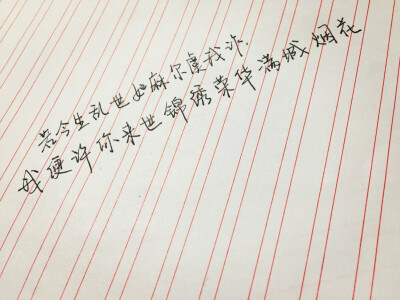 若今生乱世如麻尔虞我诈.
我便许你来世锦绣荣华满城烟花